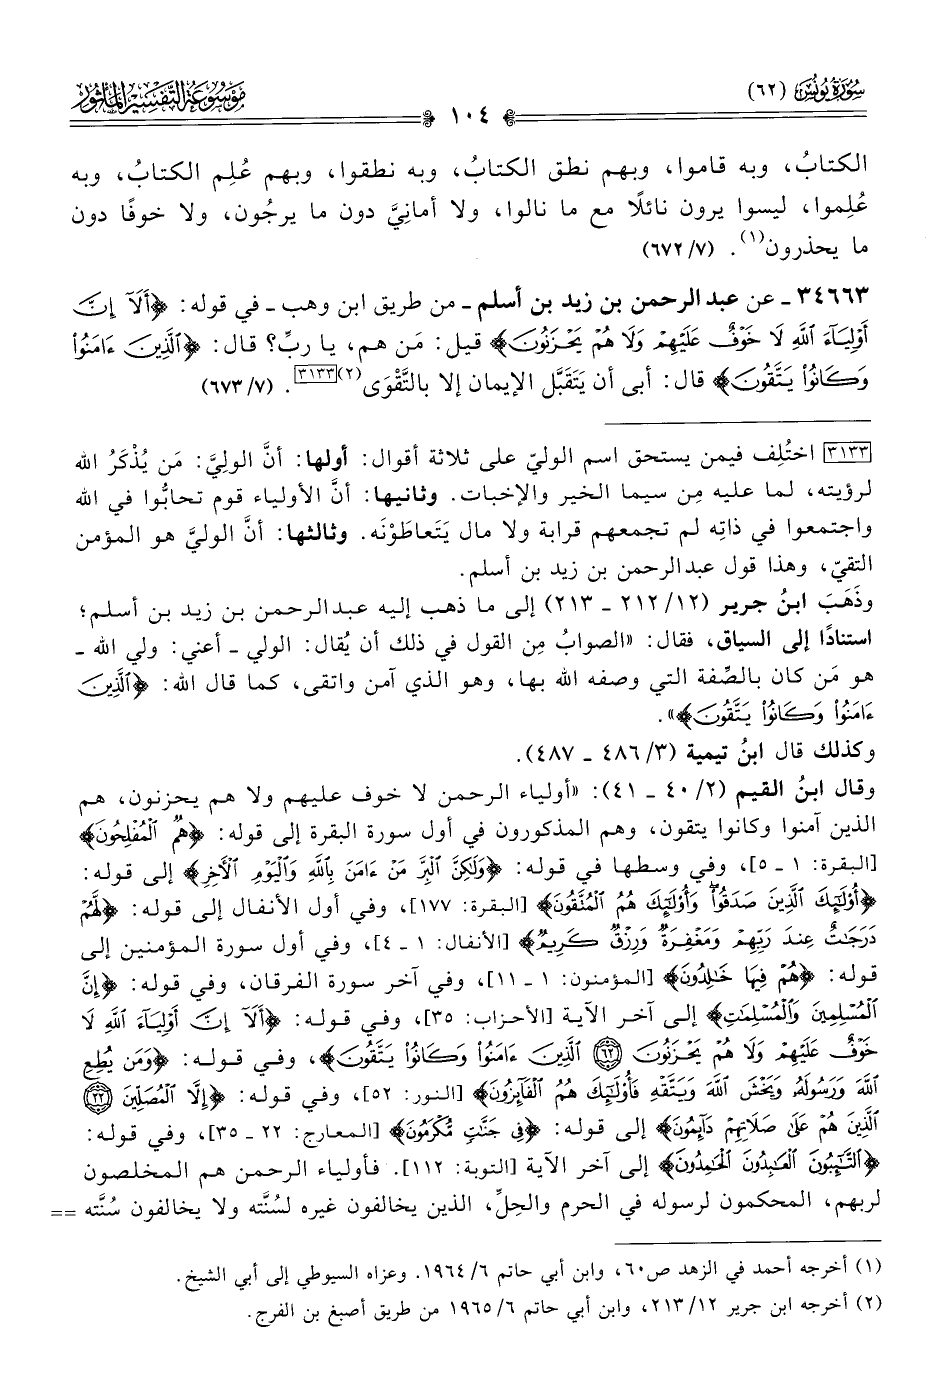 سُورَةُ يُونُسَ (٦٢)
١٠٤
مَوْسُوعَةُ التَّفْسِيرِ المَأْثُور
الكتابُ، وبه قاموا، وبهم نطق الكتابُ، وبه نطقوا، وبهم عُلِم الكتابُ، وبه
عُلِموا، ليسوا يرون نائلًا مع ما نالوا، ولا أمانيَّ دون ما يرجُون، ولا خوفًا دون
ما يحذرون(١). (٦٧٢/٧)
٣٤٦٦٣ ـ عن عبد الرحمن بن زيد بن أسلم ـ من طريق ابن وهب ـ في قوله: ﴿أَلَآ إِنَّ
أَوْلِيَآءَ ٱللَّهِ لَا خَوْفٌ عَلَيْهِمْ وَلَا هُمْ يَحْزَنُونَ﴾ قيل: مَن هم، يا ربِّ؟ قال: ﴿ٱلَّذِينَ ءَامَنُوا۟
وَكَانُوا۟ يَتَّقُونَ﴾ قال: أبى أن يَتَقَبَّل الإيمان إلا بالتَّقْوَى(٢)[٣١٣٣]. (٦٧٣/٧)
[٣١٣٣] اختُلِف فيمن يستحق اسم الوليّ على ثلاثة أقوال: أولها: أنَّ الوليَّ: مَن يُذْكَرُ الله
لرؤيته، لما عليه مِن سيما الخير والإخبات. وثانيها: أنَّ الأولياء قوم تحابُّوا في الله
واجتمعوا في ذاتِه لم تجمعهم قرابة ولا مال يَتَعاطَوْنَه. وثالثها: أنَّ الوليَّ هو المؤمن
التقيّ، وهذا قول عبد الرحمن بن زيد بن أسلم.
وذَهَبَ ابنُ جرير (٢١٢/١٢ ـ ٢١٣) إلى ما ذهب إليه عبد الرحمن بن زيد بن أسلم؛
استنادًا إلى السياق، فقال: «الصوابُ مِن القول في ذلك أن يُقال: الولي ـ أعني: ولي الله ـ
هو مَن كان بالصِّفة التي وصفه الله بها، وهو الذي آمن واتقى، كما قال الله: ﴿ٱلَّذِينَ
ءَامَنُوا۟ وَكَانُوا۟ يَتَّقُونَ﴾».
وكذلك قال ابنُ تيمية (٤٨٦/٣ ـ ٤٨٧).
وقال ابنُ القيم (٤٠/٢ ـ ٤١): «أولياء الرحمن لا خوف عليهم ولا هم يحزنون، هم
الذين آمنوا وكانوا يتقون، وهم المذكورون في أول سورة البقرة إلى قوله: ﴿هُمُ ٱلْمُفْلِحُونَ﴾
[البقرة: ١ ـ ٥]، وفي وسطها في قوله: ﴿وَلَٰكِنَّ ٱلْبِرَّ مَنْ ءَامَنَ بِٱللَّهِ وَٱلْيَوْمِ ٱلْأَخِرِ﴾ إلى قوله:
﴿أُو۟لَٰٓئِكَ ٱلَّذِينَ صَدَقُوا۟ وَأُو۟لَٰٓئِكَ هُمُ ٱلْمُتَّقُونَ﴾ [البقرة: ١٧٧]، وفي أول الأنفال إلى قوله: ﴿لَّهُمْ
دَرَجَٰتٌ عِندَ رَبِّهِمْ وَمَغْفِرَةٌ وَرِزْقٌ كَرِيمٌ﴾ [الأنفال: ١ ـ ٤]، وفي أول سورة المؤمنين إلى
قوله: ﴿هُمْ فِيهَا خَٰلِدُونَ﴾ [المؤمنون: ١ ـ ١١]، وفي آخر سورة الفرقان، وفي قوله: ﴿إِنَّ
ٱلْمُسْلِمِينَ وَٱلْمُسْلِمَٰتِ﴾ إلى آخر الآية [الأحزاب: ٣٥]، وفي قوله: ﴿أَلَآ إِنَّ أَوْلِيَآءَ ٱللَّهِ لَا
خَوْفٌ عَلَيْهِمْ وَلَا هُمْ يَحْزَنُونَ ٦٢ ٱلَّذِينَ ءَامَنُوا۟ وَكَانُوا۟ يَتَّقُونَ﴾، وفي قوله: ﴿وَمَن يُطِعِ
ٱللَّهَ وَرَسُولَهُۥ وَيَخْشَ ٱللَّهَ وَيَتَّقْهِ فَأُو۟لَٰٓئِكَ هُمُ ٱلْفَآئِزُونَ﴾ [النور: ٥٢]، وفي قوله: ﴿إِلَّا ٱلْمُصَلِّينَ ٢٢
ٱلَّذِينَ هُمْ عَلَىٰ صَلَاتِهِمْ دَآئِمُونَ﴾ إلى قوله: ﴿فِى جَنَّٰتٍ مُّكْرَمُونَ﴾ [المعارج: ٢٢ ـ ٣٥]، وفي قوله:
﴿ٱلتَّٰٓئِبُونَ ٱلْعَٰبِدُونَ ٱلْحَٰمِدُونَ﴾ إلى آخر الآية [التوبة: ١١٢]. فأولياء الرحمن هم المخلصون
لربهم، المحكمون لرسوله في الحرم والحِلِّ، الذين يخالفون غيره لسُنَّته ولا يخالفون سُنَّته ==
(١) أخرجه أحمد في الزهد ص٦٠، وابن أبي حاتم ١٩٦٤/٦. وعزاه السيوطي إلى أبي الشيخ.
(٢) أخرجه ابن جرير ٢١٣/١٢، وابن أبي حاتم ١٩٦٥/٦ من طريق أصبغ بن الفرج.